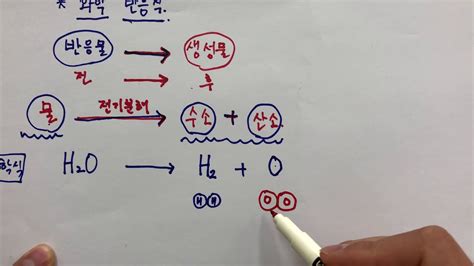 * 화학 반응식.
반응물 → 생성물
전 → 후
물 전기분해 → 수소 + 산소
학식 H₂O → H₂ + O
H H O O